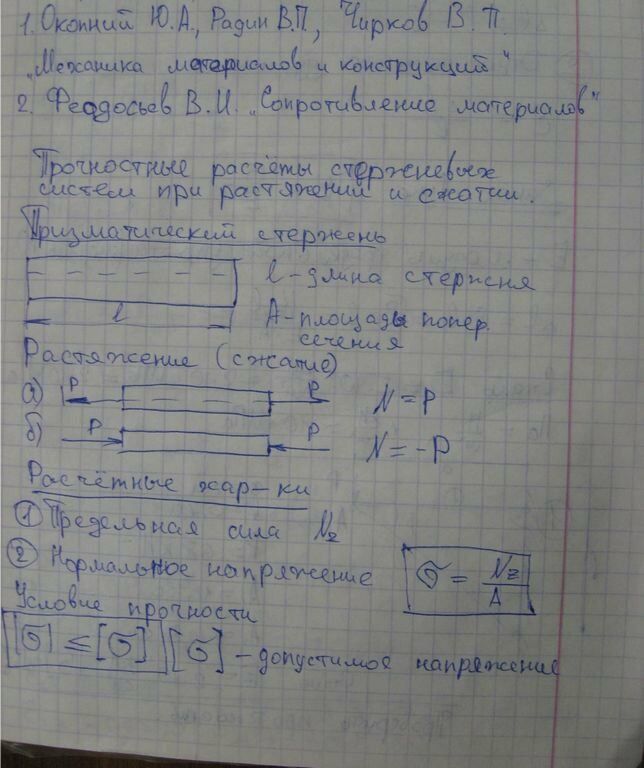 1. Окопний Ю.А., Радин В.П., Чирков В.П.
„Механика материалов и конструкций"
2. Феодосьев В.И. „Сопротивление материалов"
Прочностные расчёты стержневых
систем при растяжении и сжатии.
Призматический стержень
l - длина стержня
l
A - площадь попер.
сечения
Растяжение (сжатие)
а) P P N = P
б) P P N = -P
Расчётные хар-ки
① Предельная сила Nz
② Нормальное напряжение σ = Nz/A
Условие прочности
|σ| ≤ [σ] [σ] - допустимое напряжение